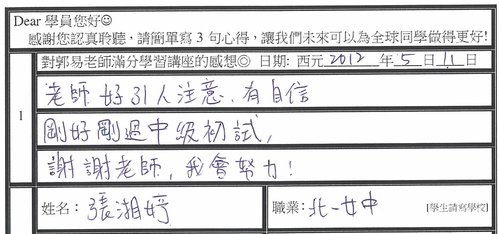 Dear 學員您好☺
感謝您認真聆聽，請簡單寫 3 句心得，讓我們未來可以為全球同學做得更好!
對郭易老師滿分學習講座的感想◎ 日期: 西元 2012 年 5 日 11 日
1
老師好引人注意，有自信
剛好剛過中級初試，
謝謝老師，我會努力！
姓名： 張湘婷 職業： 北一女中 [學生請寫學校]